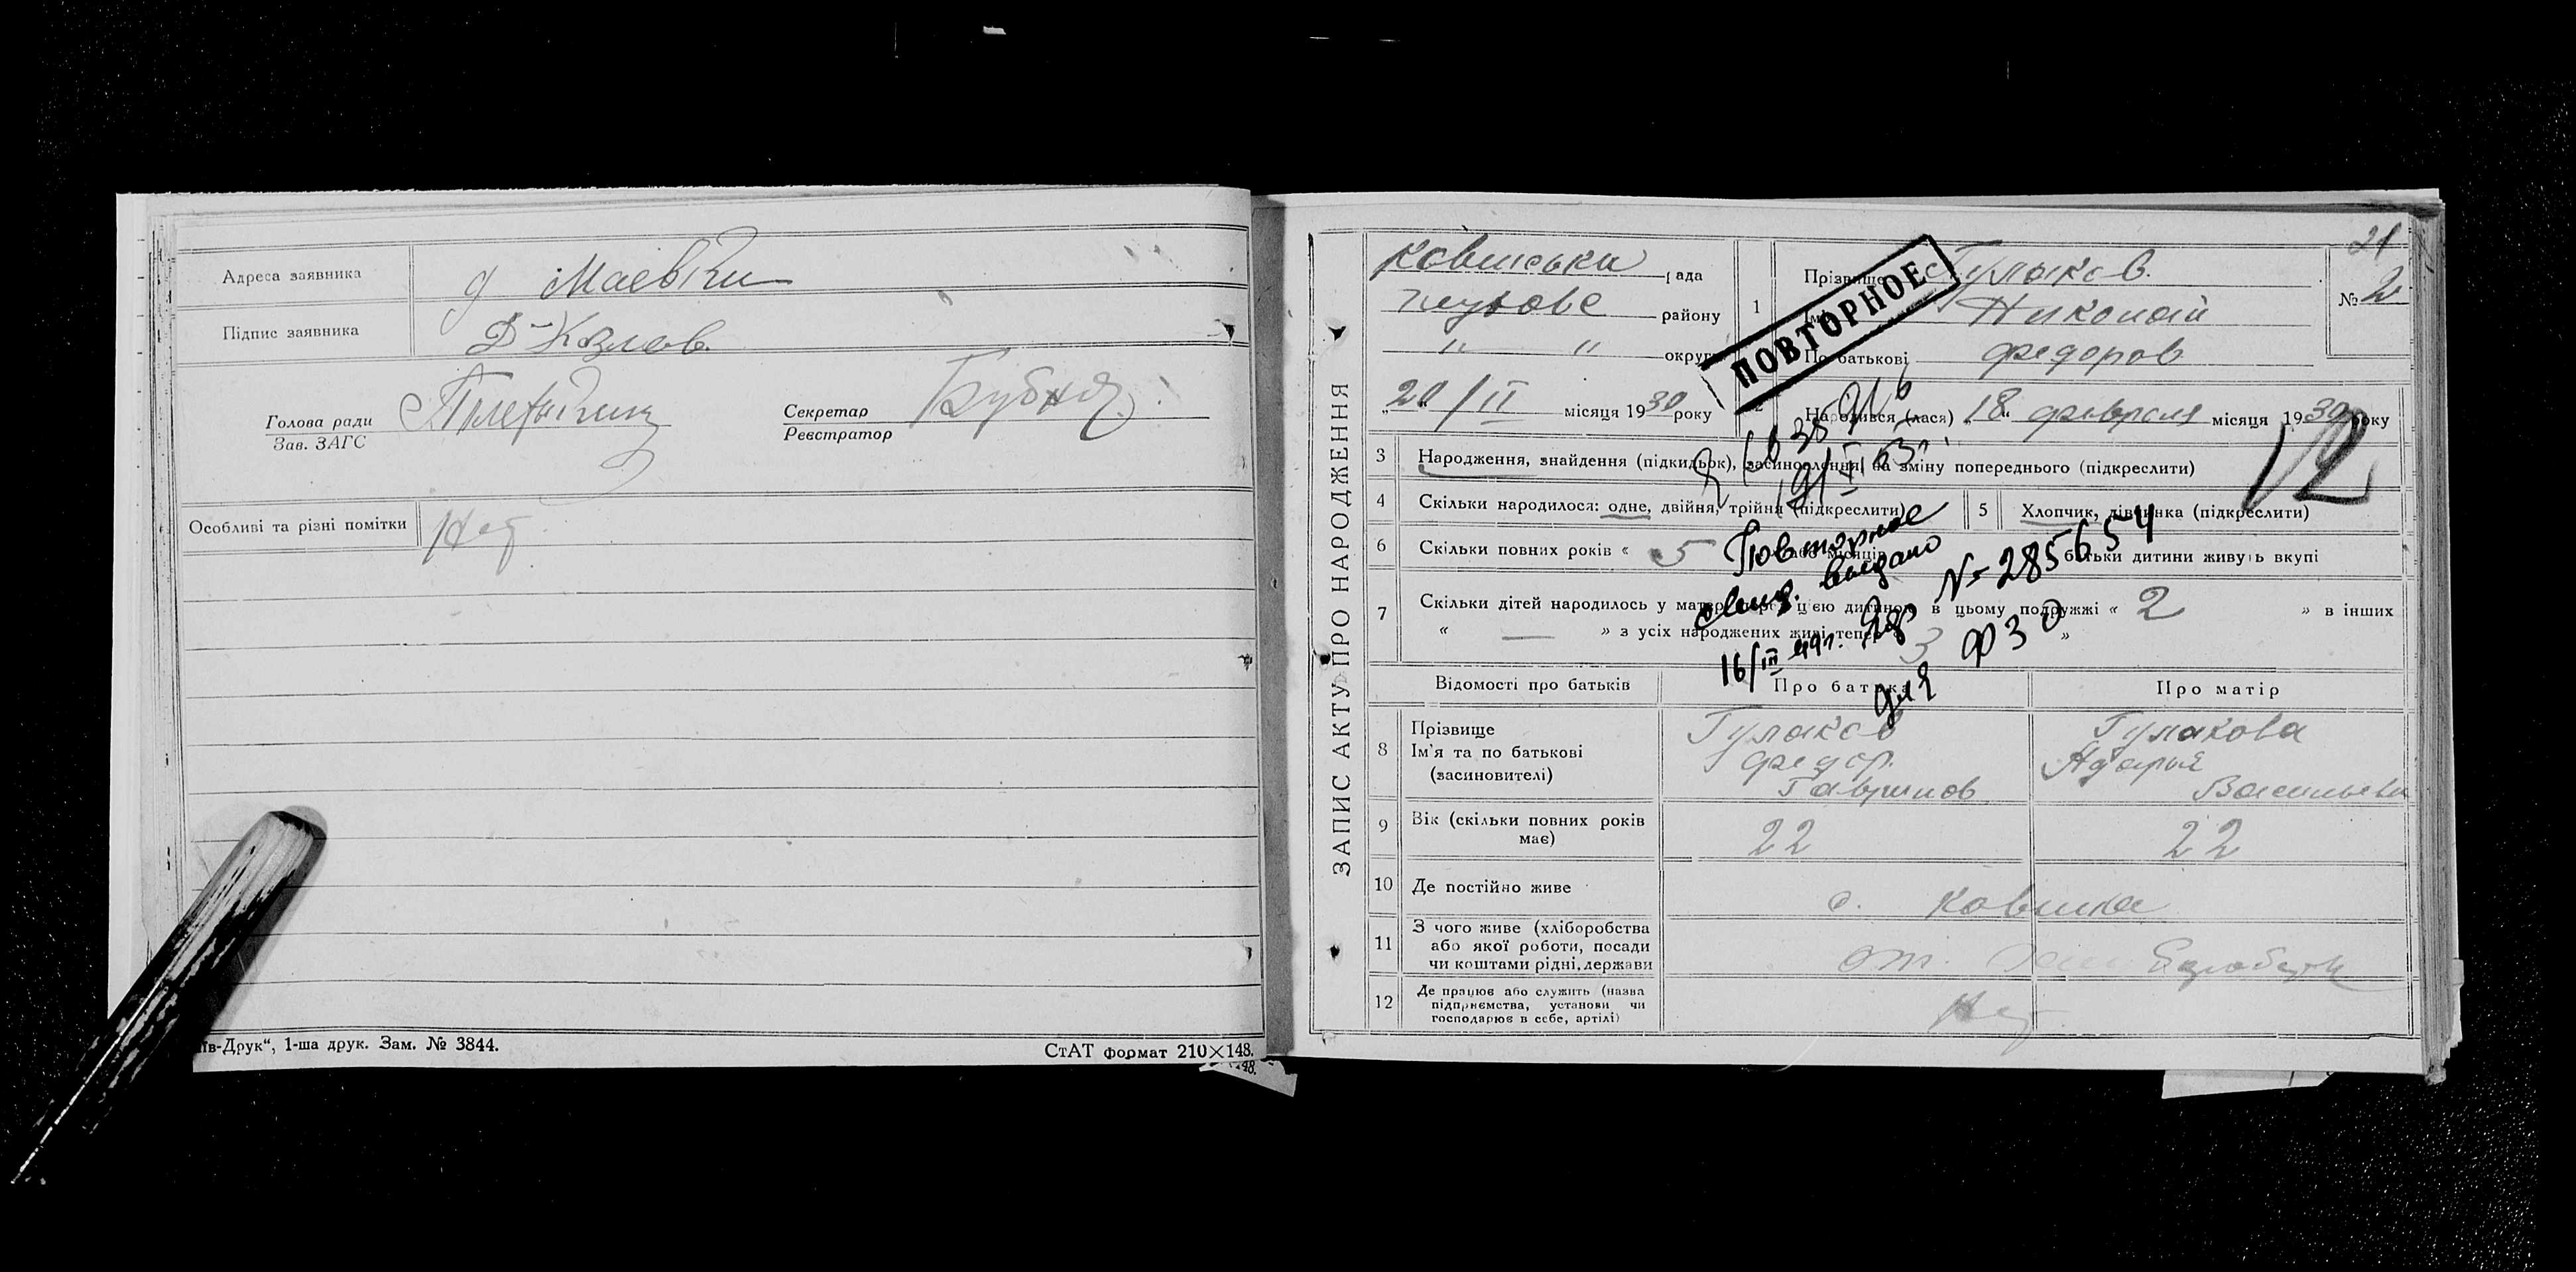 Адреса заявника д Маевки
Підпис заявника Д-Козлов.
Голова ради
Зав. ЗАГС
Секретар
Реєстратор
Особливі та різні помітки Нет
-Друк“, 1-ша друк. Зам. № 3844.
СтАТ формат 210×148.
48.
ЗАПИС АКТУ ПРО НАРОДЖЕННЯ
21
рада
району
" " округи
20/II місяця 1930 року
1
Прізвище Гулаков.
Ім'я Николай
По батькові Федоров
№ 2
ПОВТОРНОЕ
2 Народився (лася) „18“ февраля місяця 1930 року
12
3 Народження, знайдення (підкидьок), засиновлення, на зміну попереднього (підкреслити)
4 Скільки народилося: одне, двійня, трійня (підкреслити)
5 Хлопчик, дівчинка (підкреслити)
6 Скільки повних років « 5 » або місяців батьки дитини живуть вкупі
7 Скільки дітей народилось у матері перед цією дитиною в цьому подружжі « 2 » в інших
« — » з усіх народжених живі тепер 3 »
Повторное
свид. выдано
16/III 49г. № 285654
для ФЗО
Відомості про батьків
Про батька
Про матір
8 Прізвище
Ім'я та по батькові
(засиновителі)
Гулаков
Федор.
Гаврилов
Гулакова
Васильевна
9 Вік (скільки повних років має) 22 22
10 Де постійно живе с.
11 З чого живе (хліборобства
або якої роботи, посади
чи коштами рідні, держави
от
12 Де працює або служить (назва
підприємства, установи чи
господарює в себе, артілі)
Нет